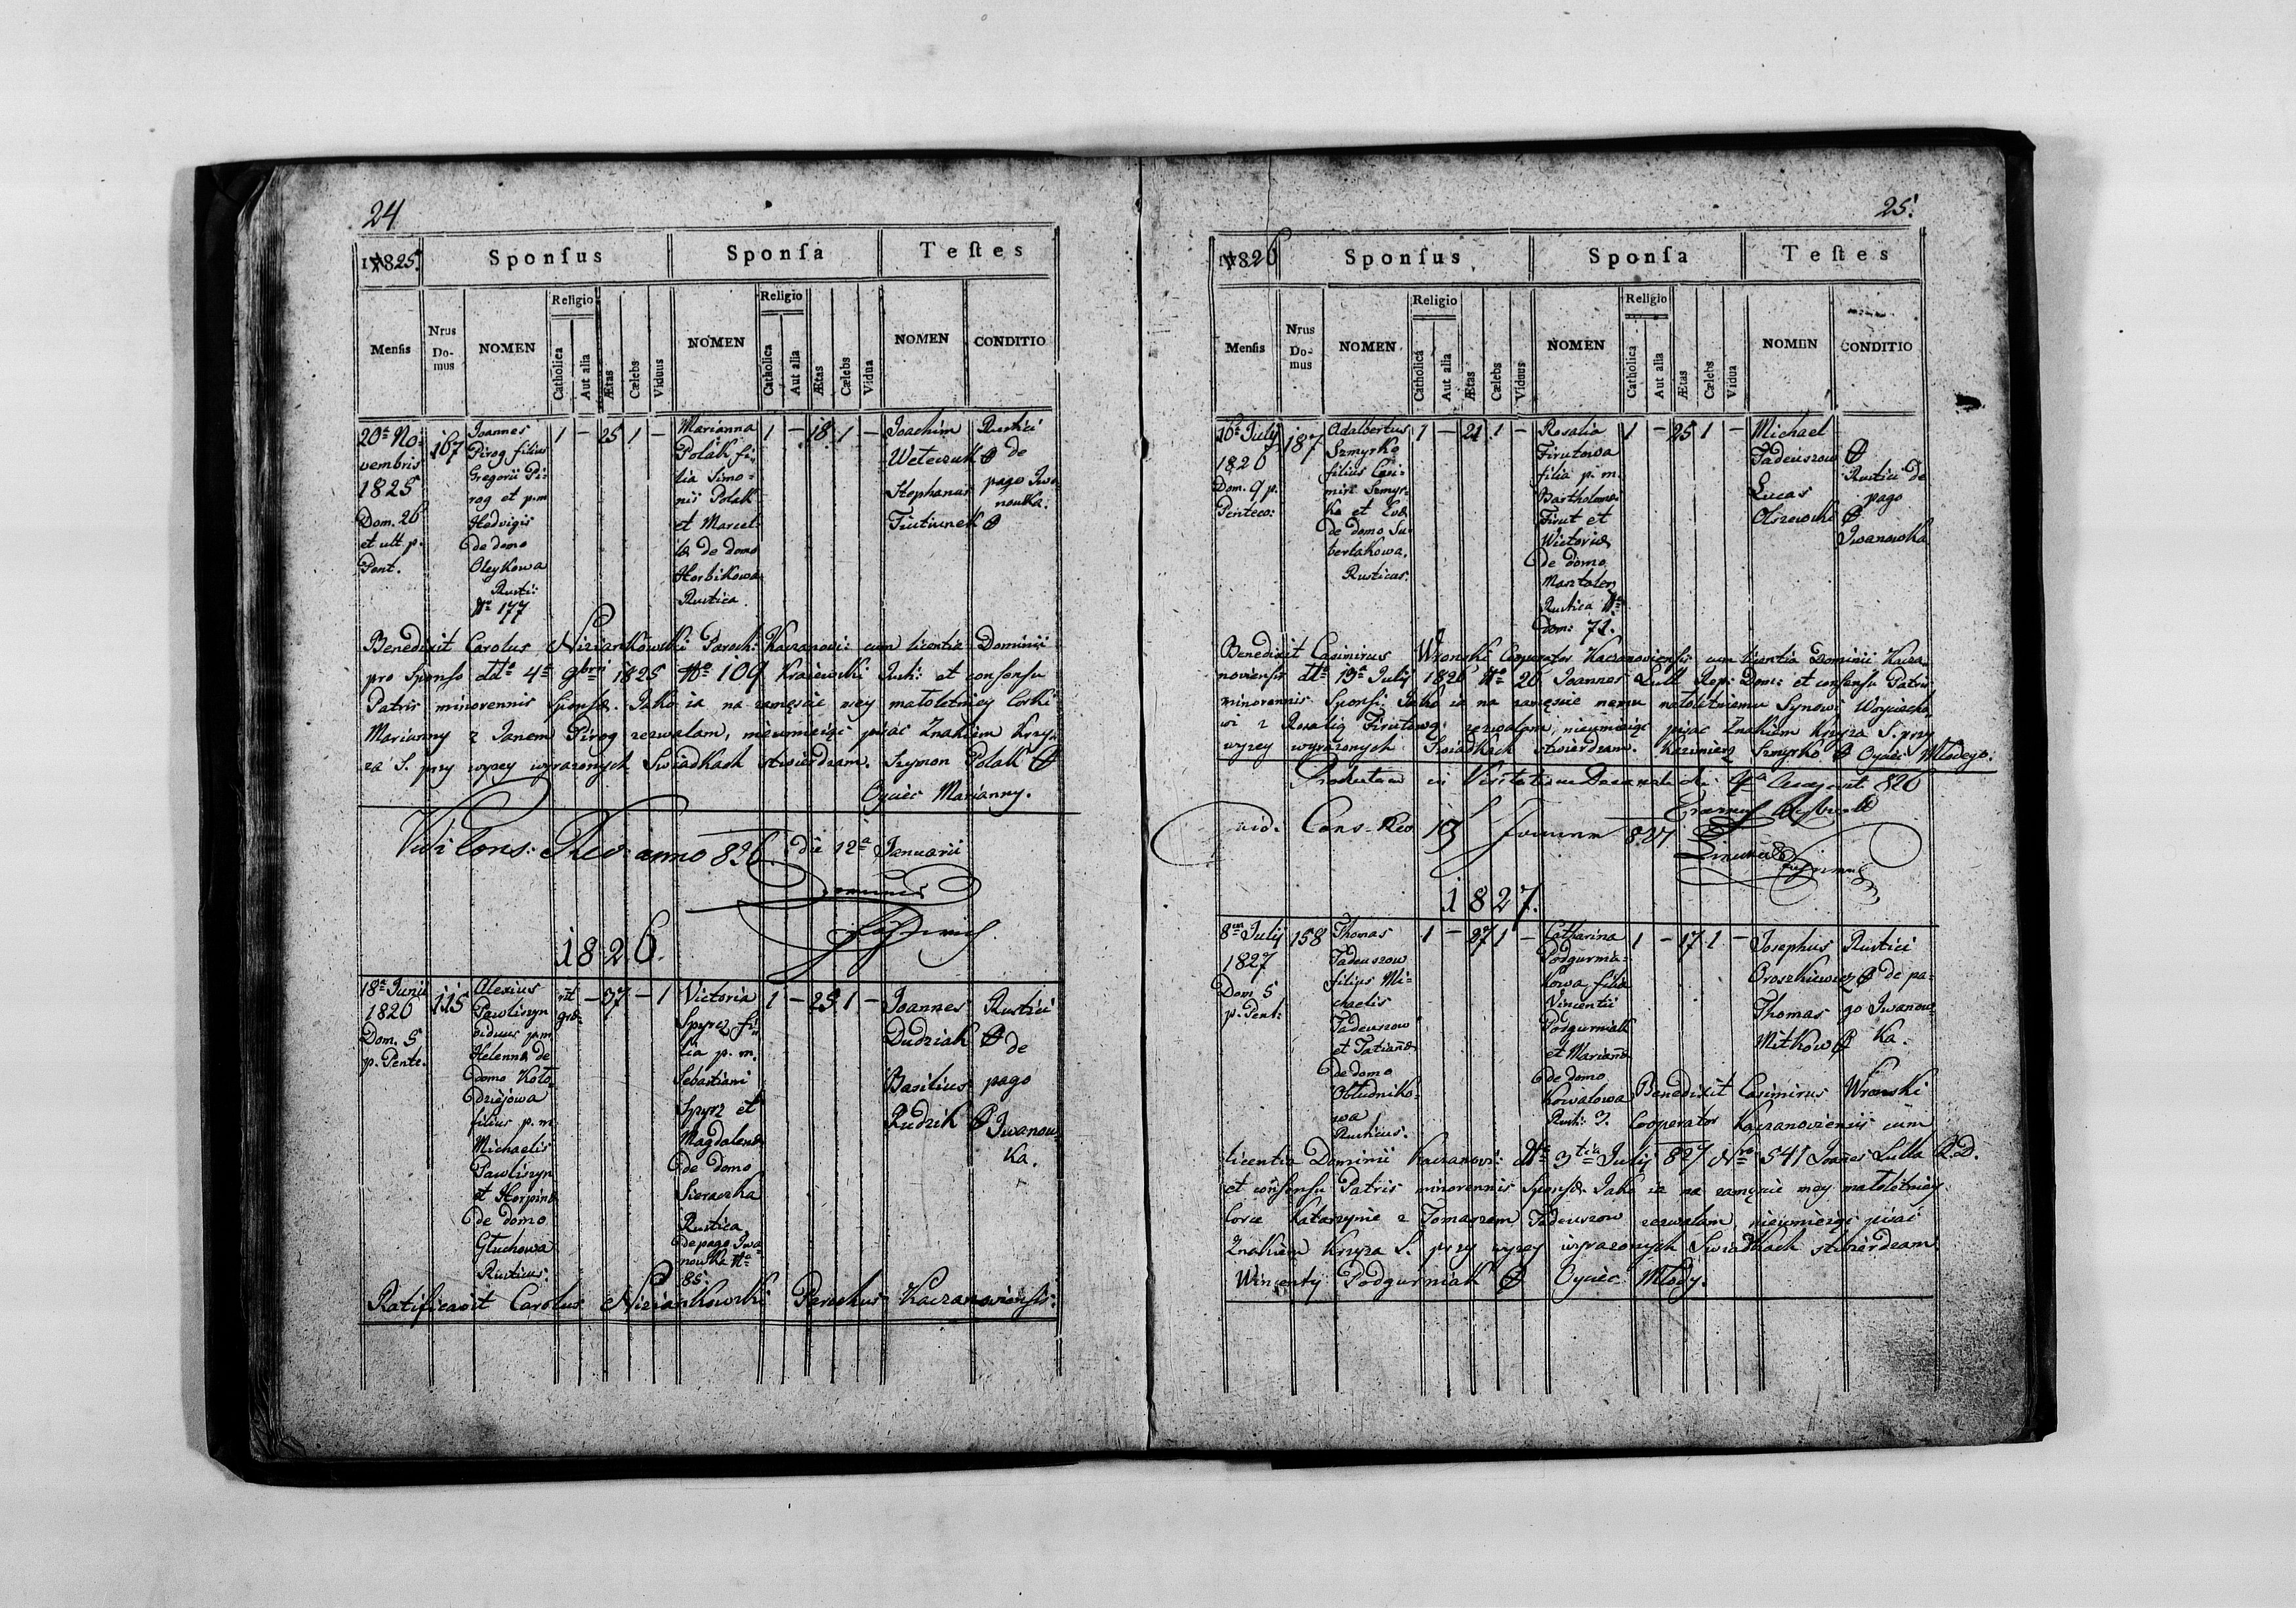 24
1825.
Sponſus
Sponſa
Teſtes
Menſis
Nrus Do-mus
NOMEN
Religio
Catholica
Aut alia
Ætas
Cælebs
Viduus
NOMEN
Religio
Catholica
Aut alia
Ætas
Cælebs
Vidua
NOMEN
CONDITIO
20ª No-
vembris
1825
Dom. 26
et ult. p.
Pent.
167
Joannes
Pirog filius
Gregorii Pi-
rog et p.m
Hedvigis
de domo
Oleykowa
Rusti:
Nº 177
1 - 25 1 -
Marianna
Polak fi-
lia Simo-
nii Polak
et Marcel-
la de domo
Horbikowa
Rustica
1 - 18 1 -
Joachim
Weteczuk
Stephanus
Tiutiunek
Rustici
de
pago Iwa-
nowka.
Benedixit Carolus Niziankowski Paroch: Kaczanovi: cum licentia Dominii
pro Sponso ddº 4ª 9bris 1825 Nº 109 Kraiewski Jud: et consensu
Patris minorennis Sponsæ. Jako ia na zamęście mey małoletniey Corki
Marianny z Janem Pirog zezwalam, nieumieiąc pisać Znakiem Krzy-
za S. przy wyzey wyrazonych Swiadkach stwierdzam. Szymon Polak
Oyciec Marianny.
Vidi Cons: Rev: anno 826 die 12ª Januarii
1826.
18ª Junii
1826
Dom. 5
p. Pente.
115
Alexius
Pawliszyn
viduus p.m
Helennæ de
domo Koło-
dziejowa
filius p.m
Michaelis
Pawliszyn
et Horpinæ
de domo
Głuchowa
Rusticus.
rit
græ:
- 37 - 1
Victoria
Spyrz fi-
lia p. m.
Sebastiani
Spyrz et
Magdalenæ
de domo
Sieraczka
Rustica
de pago Iwa-
nowka Nº
85.
1 - 25 1 -
Joannes
Dudziak
Basilius
Rudzik
Rustici
de
pago
Iwanow-
ka.
Ratificavit Carolus Niziankowski Parochus Kaczanoviensis.
25.
1826
Sponſus
Sponſa
Teſtes
Menſis
Nrus Do-mus
NOMEN
Religio
Catholica
Aut alia
Ætas
Cælebs
Viduus
NOMEN
Religio
Catholica
Aut alia
Ætas
Cælebs
Vidua
NOMEN
CONDITIO
16ª July
1826
Dom. 9 p.
Penteco:
187
Adalbertus
Szmyrko
filius Casi-
miri Szmyr-
ko et Evæ
de domo Su-
berlakowa.
Rusticus.
1 - 21 1 -
Rosalia
Firutowa
filia p. m.
Bartholome
Firut et
Wictoriæ
de domo
Mantalen
Rustica Nº
dom: 71.
1 - 25 1 -
Michael
Tadeuszow
Lucas
Olszewski
Rustici de
pago
Iwanowka
Benedixit Casimirus Wronski Cooperator Kaczanoviensis cum licentia Dominii Kacza-
noviensis ddº 13ª July 1826 Nº 26 Joannes Lull Rep: Dom: et consensu Patris
minorennis Sponsi. Jako ia na zamęscie memu małoletniemu Synowi Woyciecho-
wi z Rozalią Firutową zezwalam, nieumieiąc pisac Znakiem Krzyza S. przy
wyzey wyrazonych Swiadkach stwierdzam. Kazimierz Szmyrko Oyciec Młodego.
Vid. Cons. Rev 13 827
1827.
8va July
1827
Dom 5
p. Pent:
158
Thomas
Tadeuszow
filius Mi-
chaelis
Tadeuszow
et Tatiannæ
de domo
Obłudniko-
wa
Rusticus.
1 - 27 1 -
Catharina
Podgurnia-
kowa filia
Vincentii
Podgurniak
et Mariannæ
de domo
Kowalowa
Rusti: 3.
1 - 17 1 -
Josephus
Oroszkiewicz
Thomas
Mitkow
Rustici
de pa-
go Iwanow-
ka.
Benedixit Casimirus Wronski
Cooperator Kaczanoviensis cum
licentia Dominii Kaczanovi: ddº 3tia July 827 Nro 541 Joanes Lulla R.D.
et consensu Patris minorennis Sponsæ. Jako ia na zamęscie mey małoletniey
Corce Katarzynie z Tomaszem Tadeuszow zezwalam, nieumieiąc pisać
Znakiem Krzyza S. przy wyzey wyrazonych Swiadkach stwierdzam.
Wincenty Podgurniak Oyciec Młody.